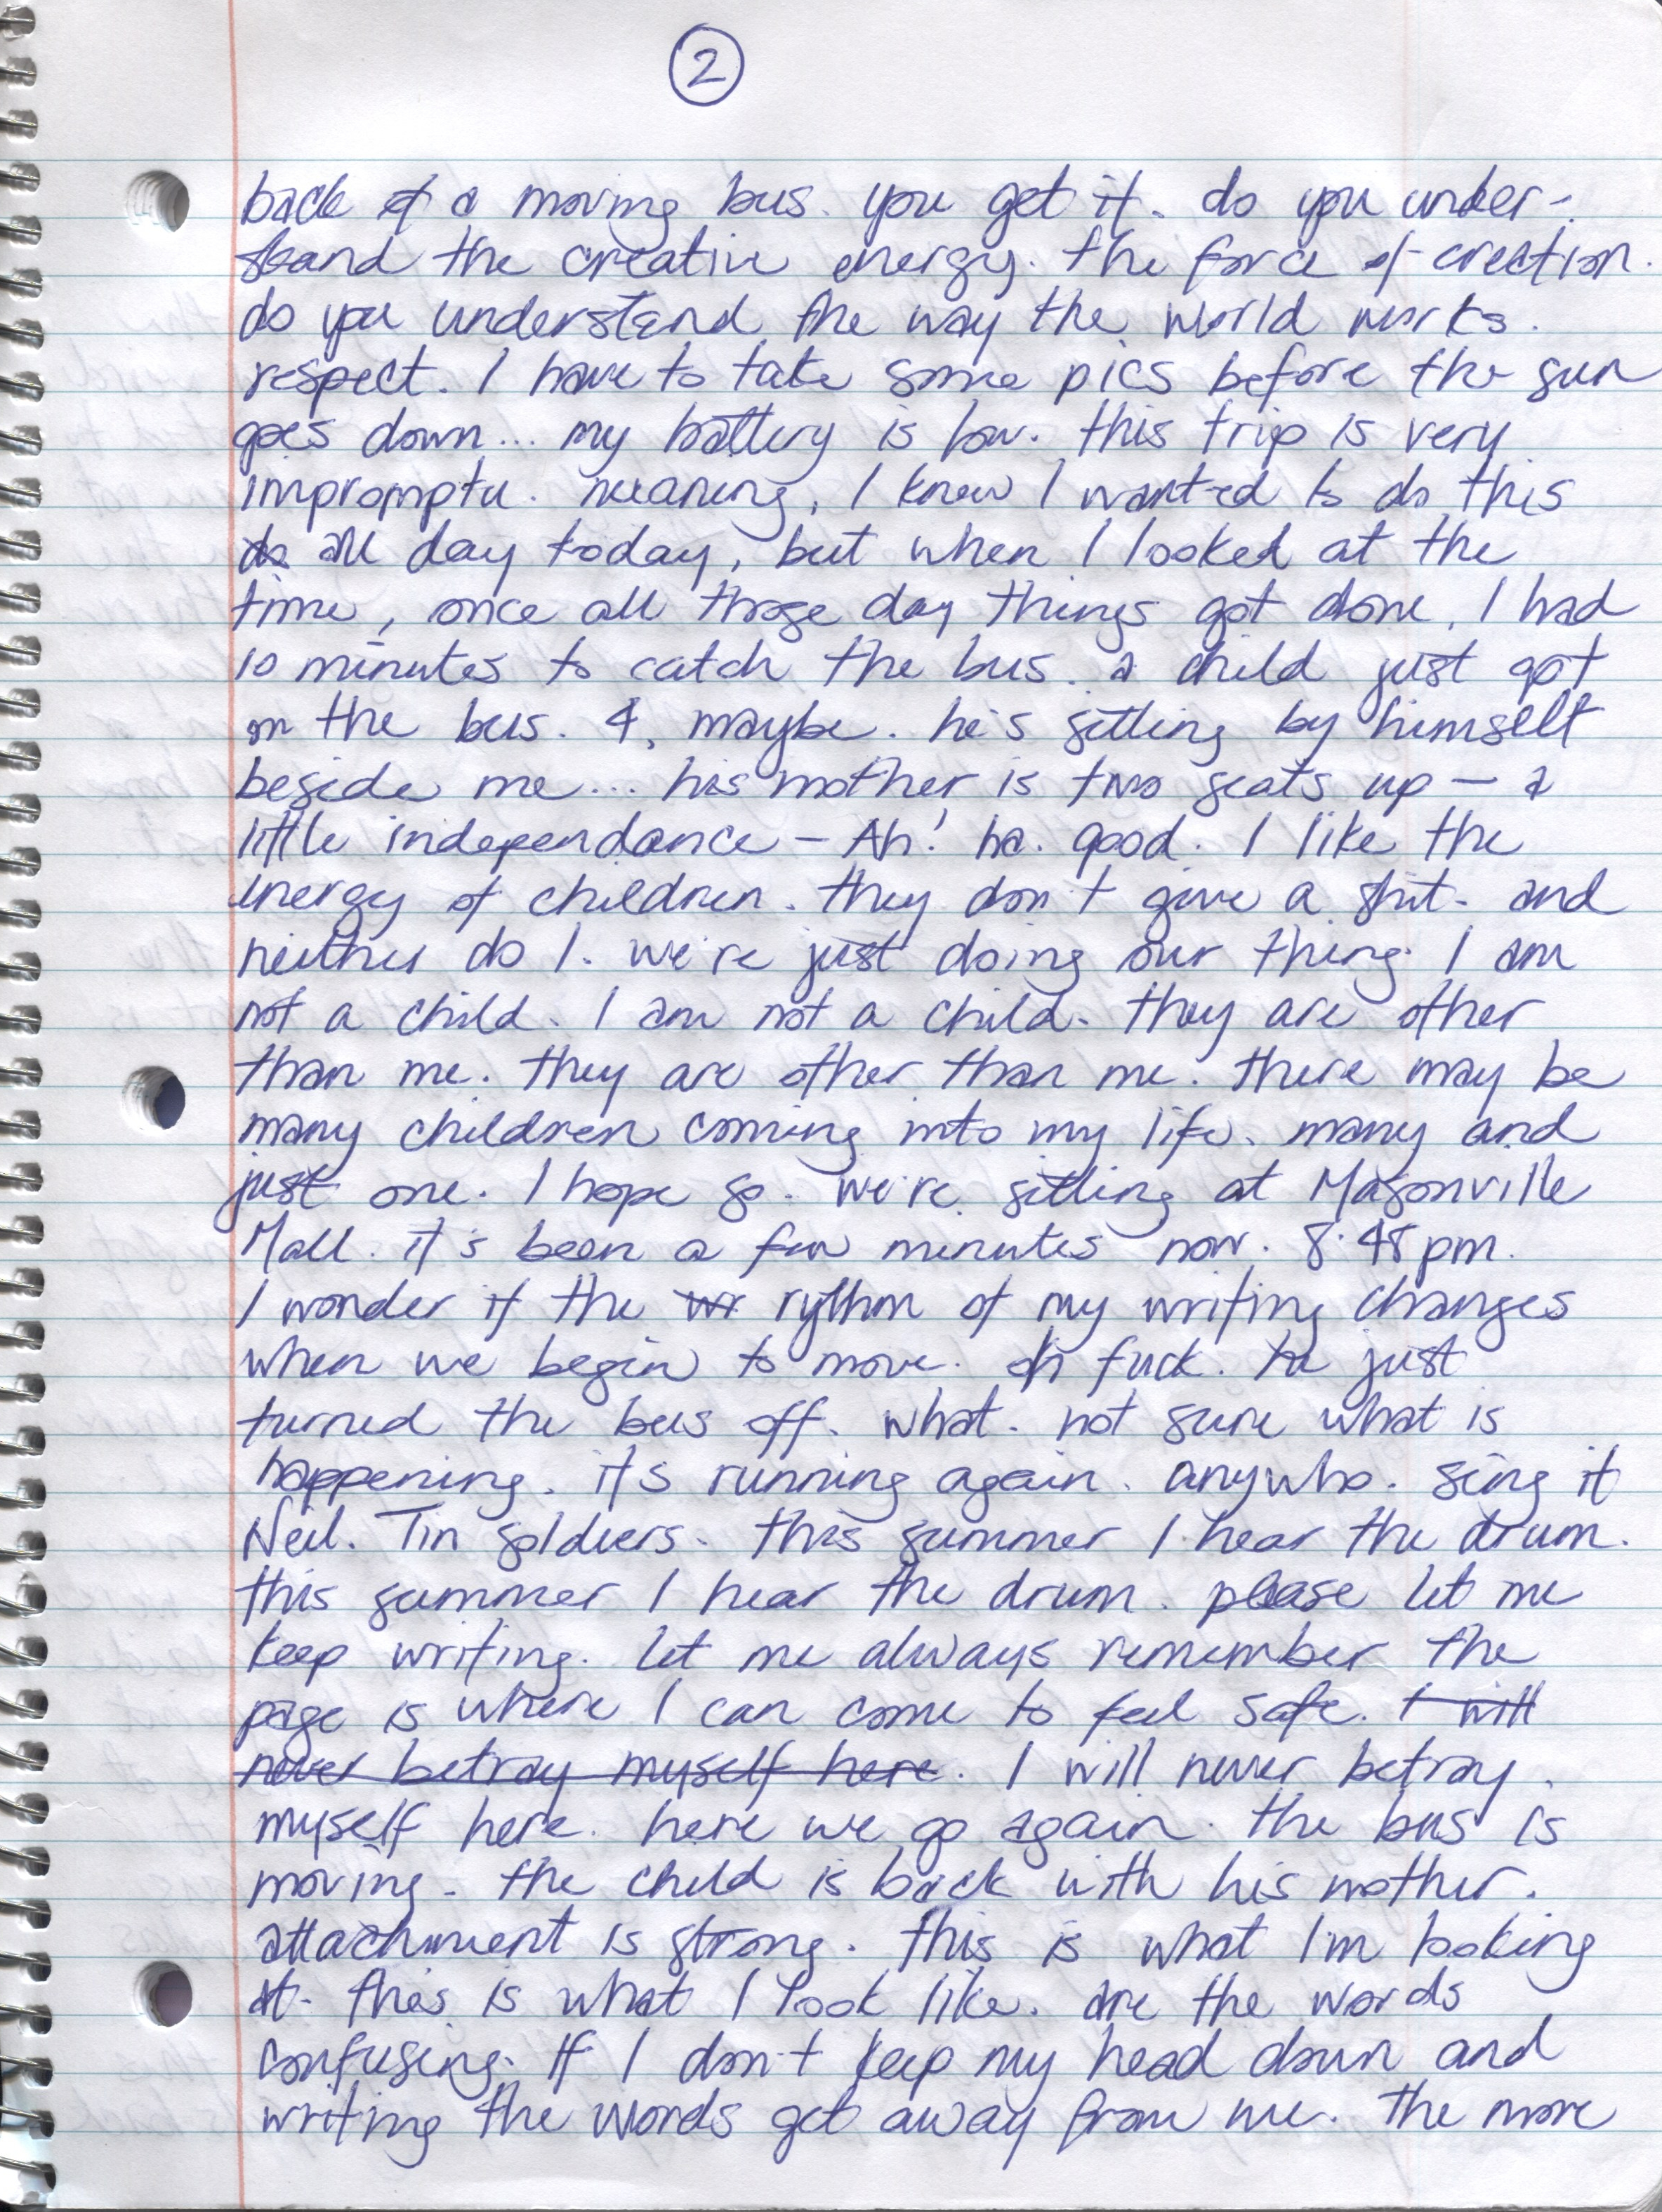 2
back of a moving bus. you get it. do you under-
stand the creative energy. the force of creation.
do you understand the way the world works.
respect. I have to take some pics before the sun
goes down... my battery is low. this trip is very
impromptu. meaning, I knew I wanted to do this
do all day today, but when I looked at the
time, once all those day things got done, I had
10 minutes to catch the bus. a child just got
on the bus. 4, maybe. he's sitting by himself
beside me... his mother is two seats up - a
little independance - Ah! ha. good. I like the
energy of children. they don't give a shit. and
neither do I. we're just doing our thing. I am
not a child. I am not a child. they are other
than me. they are other than me. there may be
many children coming into my life. many and
just one. I hope so. we're sitting at Masonville
Mall. it's been a few minutes now. 8:48 pm.
I wonder if the wr rythm of my writing changes
when we begin to move. oh fuck. he just
turned the bus off. what. not sure what is
happening. it's running again. anywho. sing it
Neil. Tin soldiers. this summer I hear the drum.
this summer I hear the drum. please let me
keep writing. let me always remember the
page is where I can come to feel safe. I will
never betray myself here. I will never betray
myself here. here we go again. the bus is
moving. the child is back with his mother.
attachment is strong. this is what I'm looking
at. this is what I look like. are the words
confusing. If I don't keep my head down and
writing the words get away from me. the more